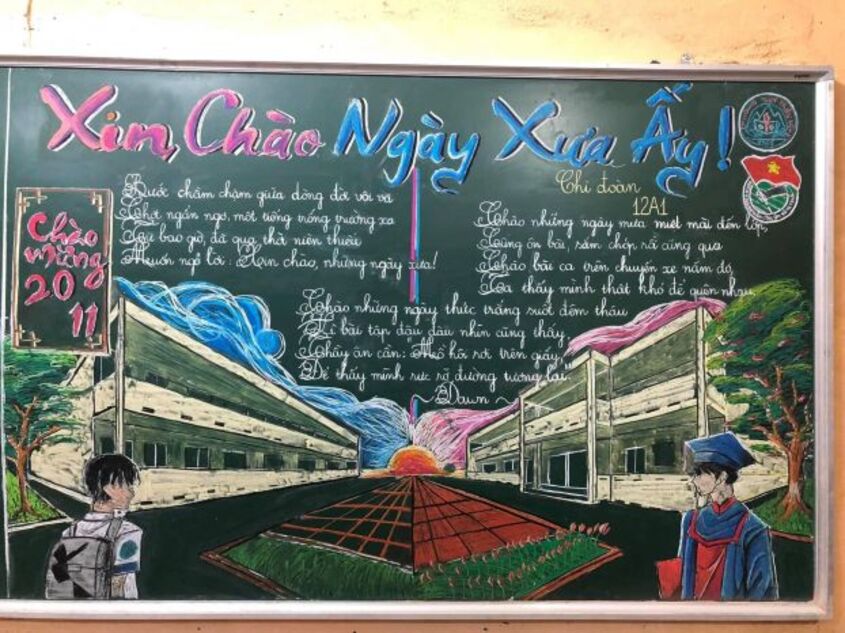 Xin Chào Ngày Xưa Ấy!
Chi đoàn
12A1
Chào
mừng
20
11
Bước chầm chậm giữa dòng đời vội vã
Chợt ngẩn ngơ, một tiếng trống trường xa
Tự bao giờ, đã qua, thời niên thiếu
Muốn ngỏ lời: Xin chào, những ngày xưa!
Chào những ngày mưa miệt mài đến lớp,
Cùng ôn bài, sấm chớp rồi cũng qua
Chào bài ca trên chuyến xe năm đó,
Ta thấy mình thật khó để quên nhau
Chào những ngày thức trắng suốt đêm thâu
Vì bài tập đậu đầu nhìn cũng thấy
Thầy ân cần: "Mồ hôi rơi trên giấy,
Để thấy mình rực rỡ đường tương lai"
~ Dawn ~